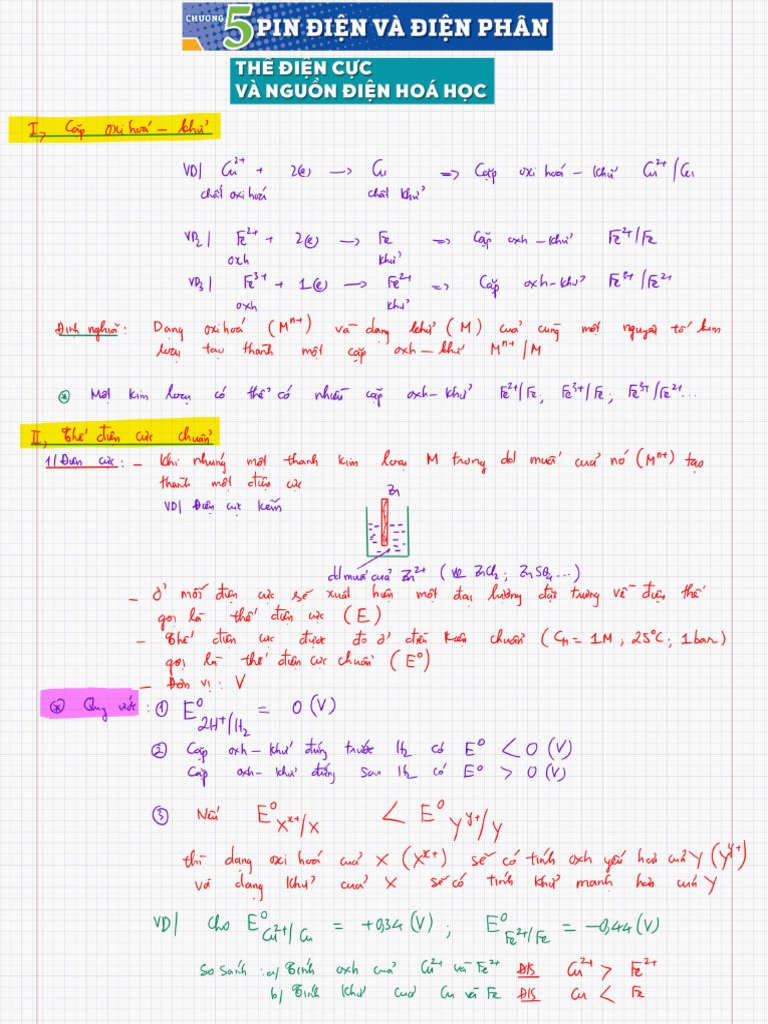 CHƯƠNG 5 PIN ĐIỆN VÀ ĐIỆN PHÂN
THẾ ĐIỆN CỰC
VÀ NGUỒN ĐIỆN HOÁ HỌC
I, Cặp oxi hoá – khử
VD| Cu²⁺ + 2(e) → Cu => Cặp oxi hoá – khử Cu²⁺/Cu
chất oxi hoá chất khử
VD₂| Fe²⁺ + 2(e) → Fe => Cặp oxh – khử Fe²⁺/Fe
oxh khử
VD₃| Fe³⁺ + 1(e) → Fe²⁺ => Cặp oxh – khử Fe³⁺/Fe²⁺
oxh khử
Định nghĩa: Dạng oxi hoá (Mⁿ⁺) và dạng khử (M) của cùng một nguyên tố kim
loại tạo thành một cặp oxh – khử Mⁿ⁺/M
* Một kim loại có thể có nhiều cặp oxh – khử Fe²⁺/Fe; Fe³⁺/Fe; Fe³⁺/Fe²⁺...
II, Thế điện cực chuẩn
1/ Điện cực: – Khi nhúng một thanh kim loại M trong dd muối của nó (Mⁿ⁺) tạo
thành một điện cực
Zn
VD| Điện cực kẽm
dd muối của Zn²⁺ (VD ZnCl₂; ZnSO₄...)
– Ở mỗi điện cực sẽ xuất hiện một đại lượng đặt trưng về điện thế
gọi là thế điện cực (E)
– Thế điện cực được đo ở điều kiện chuẩn (Cₘ = 1M, 25°C; 1bar)
gọi là thế điện cực chuẩn (E⁰)
– Đơn vị: V
* Quy ước: ① E⁰ 2H⁺/H₂ = 0 (V)
② Cặp oxh – khử đứng trước H₂ có E⁰ < 0 (V)
Cặp oxh – khử đứng sau H₂ có E⁰ > 0 (V)
③ Nếu E⁰ Xˣ⁺/X < E⁰ Yʸ⁺/Y
thì dạng oxi hoá của X (Xˣ⁺) sẽ có tính oxh yếu hơn của Y (Yʸ⁺)
và dạng khử của X sẽ có tính khử mạnh hơn của Y
VD| Cho E⁰ Cu²⁺/Cu = +0,34 (V); E⁰ Fe²⁺/Fe = –0,44 (V)
So sánh: a/ Tính oxh của Cu²⁺ và Fe²⁺ Đ/S Cu²⁺ > Fe²⁺
b/ Tính khử của Cu và Fe Đ/S Cu < Fe